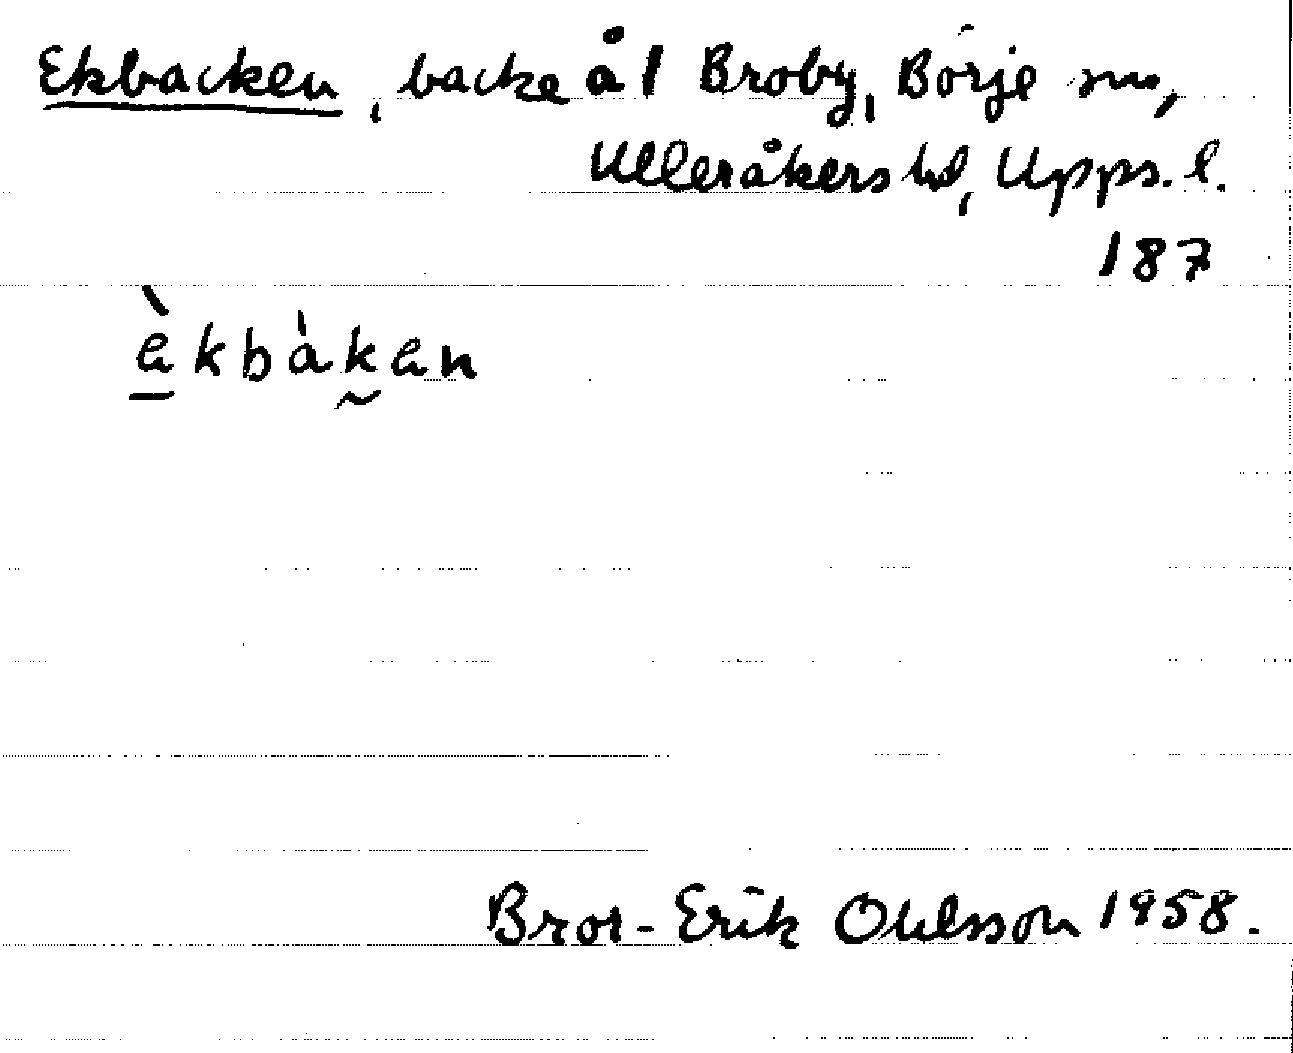 Ekbacken, backe å 1 Broby, Börje sn,
Ulleråkers hd, Upps. l.
187
è̲kbàk̰ən
Bror-Erik Ohlsson 1958.